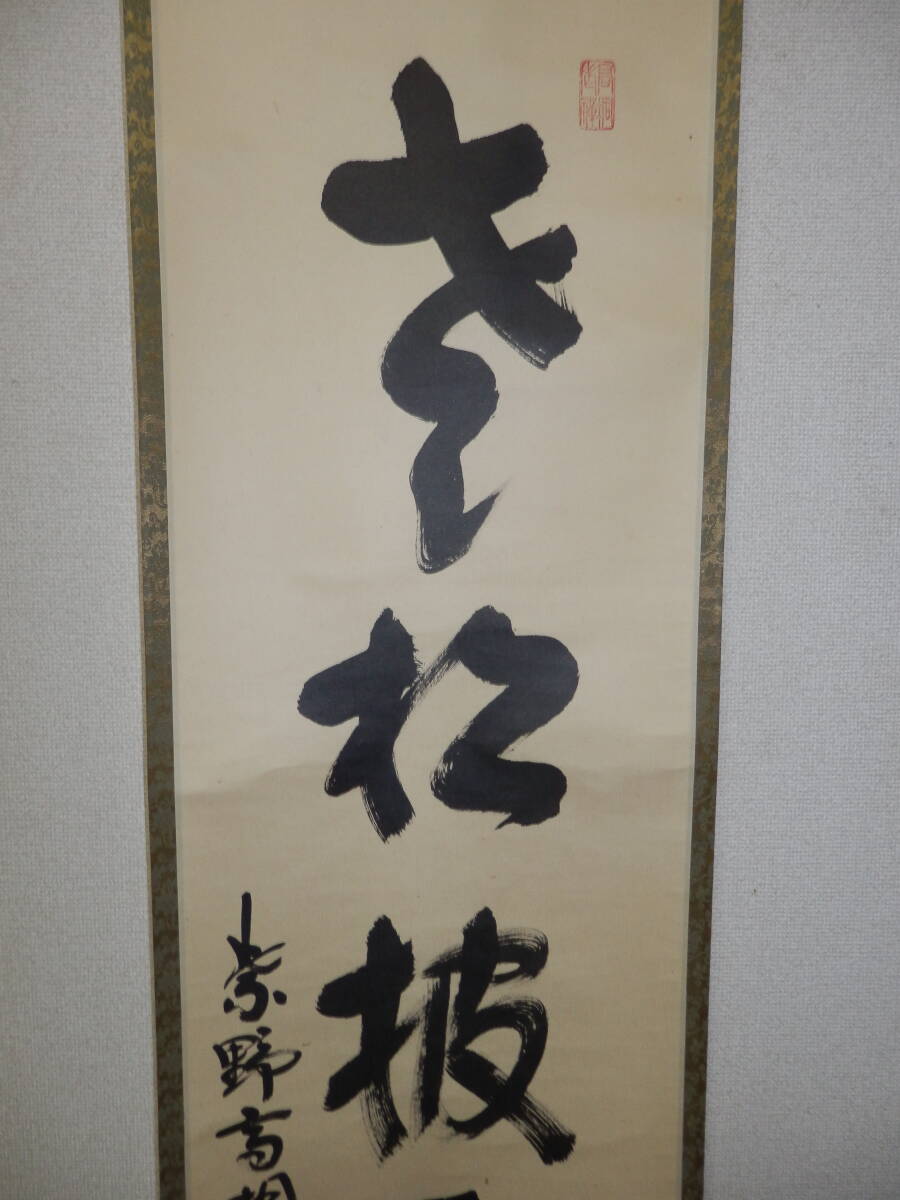 老松披
紫野高桐